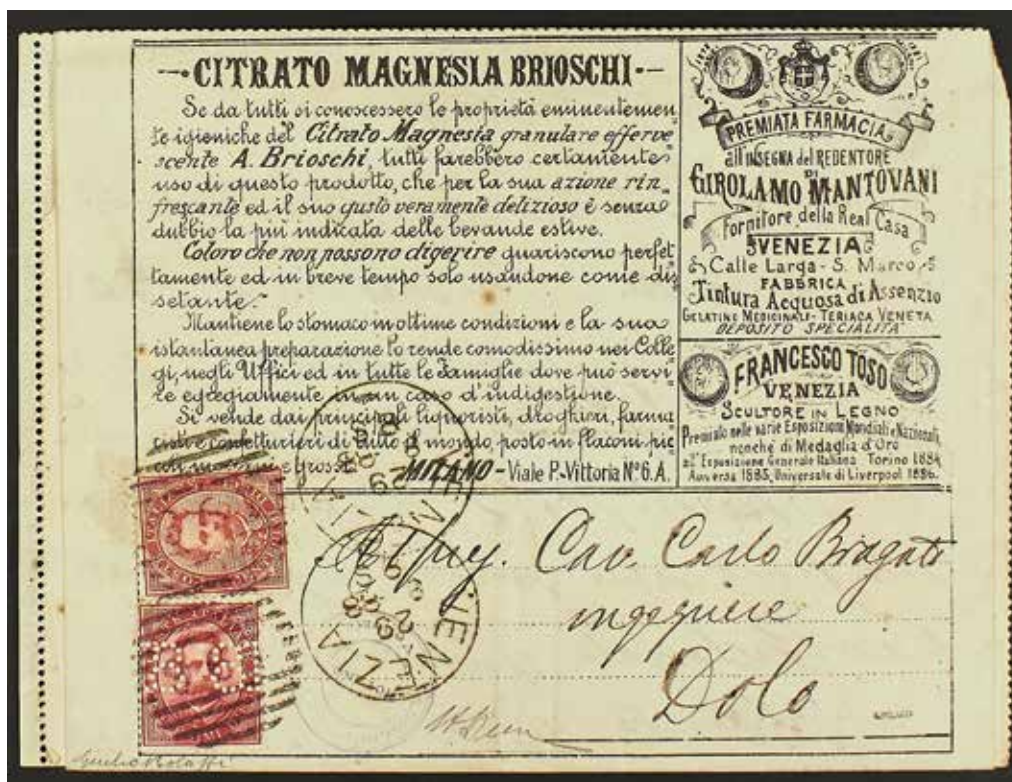 CITRATO MAGNESIA BRIOSCHI
Se da tutti si conoscessero le proprietá eminentemen
te igieniche del Citrato Magnesia granulare efferve
scente A. Brioschi, tutti farebbero certamente
uso di questo prodotto, che per la sua azione rin
frescante ed il suo gusto veramente delizioso é senza
dubbio la piú indicata delle bevande estive.
Coloro che non possono digerire guariscono perfet
tamente ed in breve tempo solo usandone come dis
setante.
Mantiene lo stomaco in ottime condizioni e la sua
istantanea preparazione lo rende comodissimo nei Colle
gi, negli Uffici ed in tutte le Famiglie dove puó servi
re egregiamente in un caso d'indigestione.
Si vende dai principali liquoristi, droghieri, farma
cisti e confetturieri di tutto il mondo, posto in flaconi pic
e grossi. MILANO - Viale P. Vittoria Nº 6. A.
PREMIATA FARMACIA
all'INSEGNA del REDENTORE
DI
GIROLAMO MANTOVANI
Fornitore della Real Casa
VENEZIA
Calle Larga - S. Marco
FABBRICA
Tintura Acquosa di Assenzio
GELATINE MEDICINALI - TERIACA VENETA
DEPOSITO SPECIALITÁ
FRANCESCO TOSO
VENEZIA
SCULTORE IN LEGNO
Premiato nelle varie Esposizioni Mondiali e Nazionali,
nonché di Medaglia d'Oro
all'Esposizione Generale Italiana Torino 1884
Anversa 1885, Universale di Liverpool 1886.
Cav. Carlo Bragato
ingegniere
Dolo
VENEZIA
29
VENEZIA
29
Giulio Bolaffi